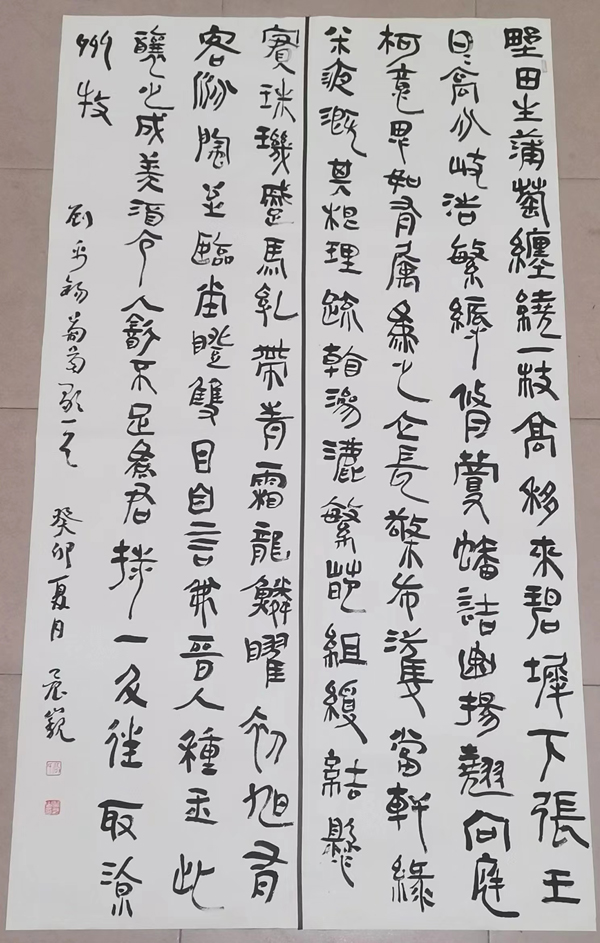 野田生蒲萄纏繞一枝高移來碧墀下張王
日日高分歧浩繁縟脩蔓蟠詰曲揚翹向庭
柯意思如有屬為之立長檠布濩當軒綠
米液溉其根理疏漉繁葩組綬結懸
實珠璣蹙馬乳帶青霜龍鱗曜初旭有
客汾至臨堂瞪雙目自言我晉人種玉此
釀之成美酒令人飲不足為君持一斗往取涼
州牧
劉禹錫葡萄歌一首 癸卯夏月